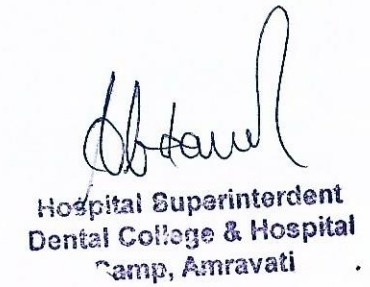 Hospital Superinterdent
Dental College & Hospital
Camp, Amravati